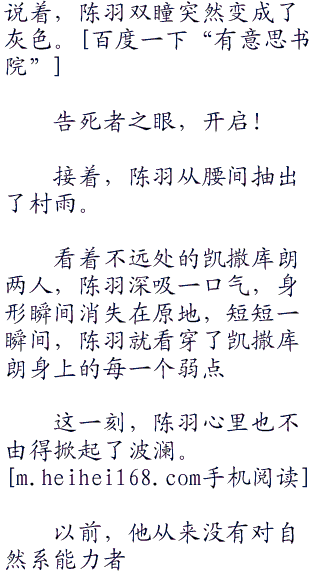 说着，陈羽双瞳突然变成了
灰色。[百度一下“有意思书
院”]
告死者之眼，开启！
接着，陈羽从腰间抽出
了村雨。
看着不远处的凯撒库朗
两人，陈羽深吸一口气，身
形瞬间消失在原地，短短一
瞬间，陈羽就看穿了凯撒库
朗身上的每一个弱点
这一刻，陈羽心里也不
由得掀起了波澜。
[m.heihei168.com手机阅读]
以前，他从来没有对自
然系能力者